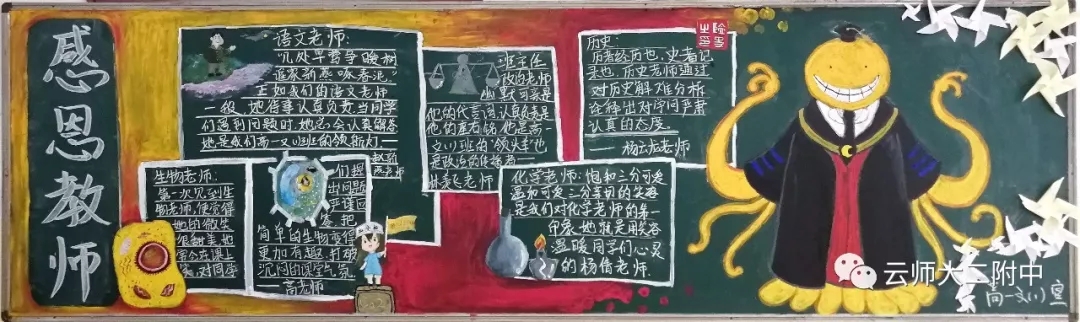 感恩教师
语文老师:
"几处早莺争暖树
谁家新燕啄春泥。"
正如我们的语文老师
一般,她待事认真负责,当同学
们遇到问题时,她总会认真解答
她是我们高一文1班的领航灯—
班主任
政治老师
幽默可亲是
他的代言词,认真负责是
他的座右铭,他是高一
文(1)班的"领头羊"也
是政治的传播者——
老师
历史:
历者经历也,史者记
录也,历史老师通过
对历史解难分析
诠释出对学问严肃
认真的态度。
——杨云龙老师
生物老师:
第一次见到生
物老师,便觉得
她的微笑
很甜美,她
常会在课上
笑,对同学
们提
出问题
严谨回
答,把
简单的生物变得
更加有趣,打破
沉闷的课堂气氛
——高老师
化学老师:饱和三分可爱
温和可爱三分亲切的笑容
是我们对化学老师的第一
印象,她就是用笑容
温暖同学们心灵
的杨倩老师.
高一文(1)宣
云师大二附中